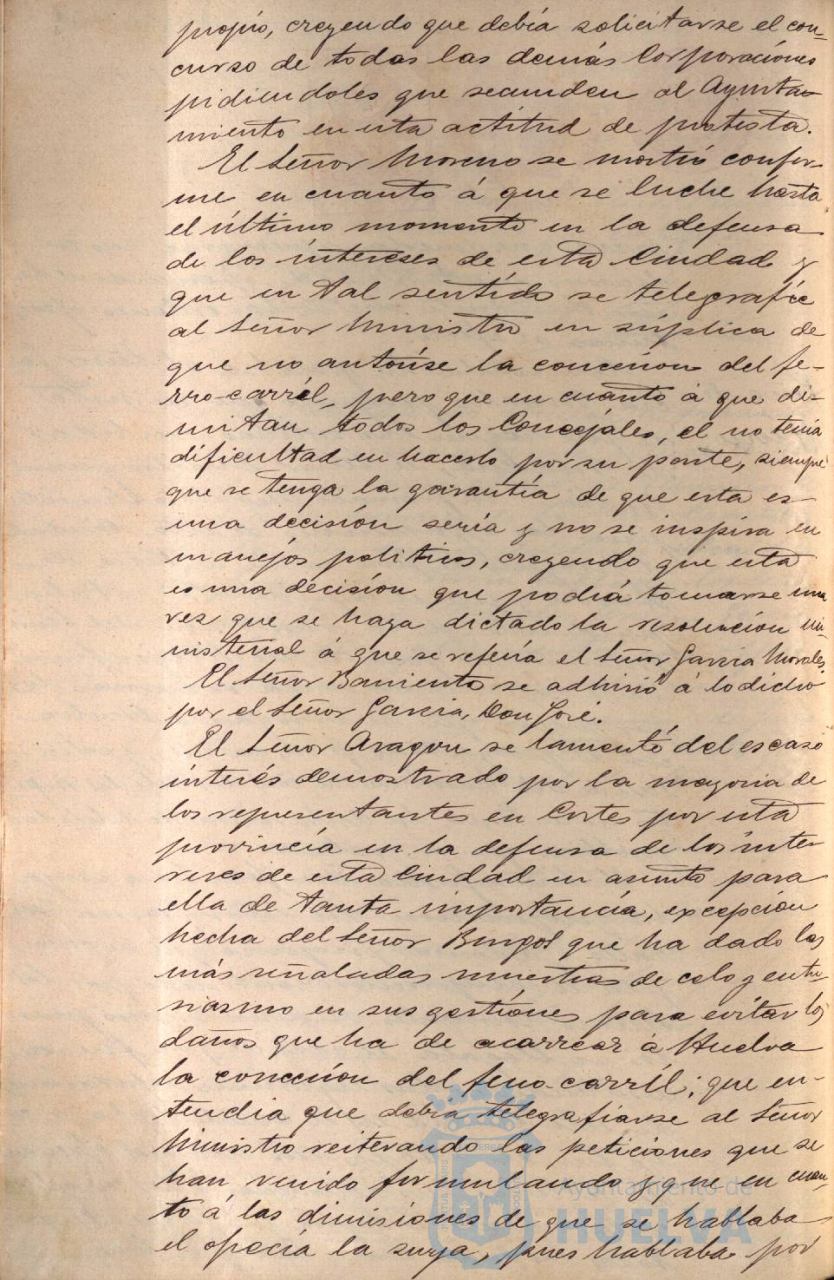 propio, creyendo que debía solicitarse el con-
curso de todas las demás Corporaciones
pidiendoles que secunden al Ayunta-
miento en esta actitud de protesta.
El Señor Moreno se mostró confor-
me en cuanto á que se luche hasta
el último momento en la defensa
de los intereses de esta Ciudad y
que en tal sentido se telegrafíe
al Señor Ministro en súplica de
que no autorise la concesion del fe-
rro-carríl, pero que en cuanto á que di-
mitan todos los Concejales, el no tenía
dificultad en hacerlo por su parte, siempre
que se tenga la garantía de que esta es
una decisión seria y no se inspira en
manejos politicos, creyendo que esta
es una decisión que podrá tomarse una
vez que se haya dictado la resolución mi-
nisterial á que se refería el Señor Garcia Morales.
El Señor Barriento se adhirió á lo dicho
por el Señor Garcia, Don José.
El Señor Aragon se lamentó del escaso
interés demostrado por la mayoria de
los representantes en Cortes por esta
provincia en la defensa de los inte-
reses de esta Ciudad en asunto para
ella de tanta importancia, excepcion
hecha del Señor Burgos que ha dado las
más señaladas muestras de celo y entu-
siasmo en sus gestiones para evitar los
daños que ha de acarrear á Huelva
la concesion del ferro-carríl; que en-
tendia que debia telegrafiarse al Señor
Ministro reiterando las peticiones que se
han venido formulando y que en cuan-
to á las dimisiones de que se hablaba
el ofrecía la suya, pues hablaba por
Ayuntamiento de
HUELVA